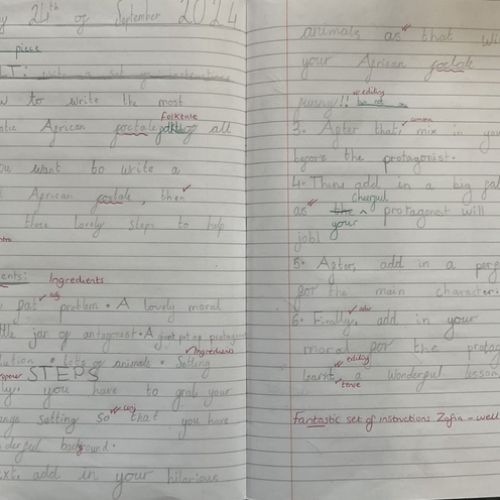 24th of September 2024
piece
LT:
to write the most
Folktale
African foctale of all
you want to write a
African foctale, then
these lovely steps to help
Ingredients
problem • A lovely moral
jar of antagonist • A giant pot of protagonist
Lots of animals • Setting
Ingredients
STEPS
you have to grab your
setting so that you have
background.
add in your hilarious
animals as that will
your African foctale
funny!! editing
comma
3. After that, mix in your
before the protagonist.
4. Then, add in a big
cheerful
as the ^ protagonist will
your
job!
5. After, add in a
for the main character.
adv
6. Finally, add in your
moral for the
editing
learnt a wonderful lesson
tense
Fantastic set of instructions Zofia - well